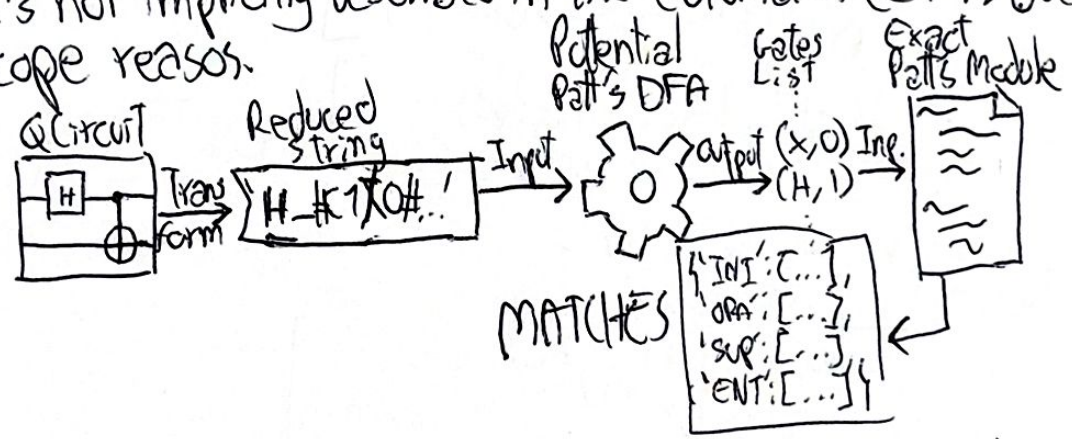 's not implicitly
cope reasos.
QCircuit
H
Trans
form
Reduced
string
'H_#(1)(0#...'
Input
Potential
Patt's DFA
Output
Gates
List
(X,0)
(H,1)
Inp.
Exact
Patt's Module
MATCHES
{'INI':[...],
'OPA':[...],
'SUP':[...]
'ENT':[...]}